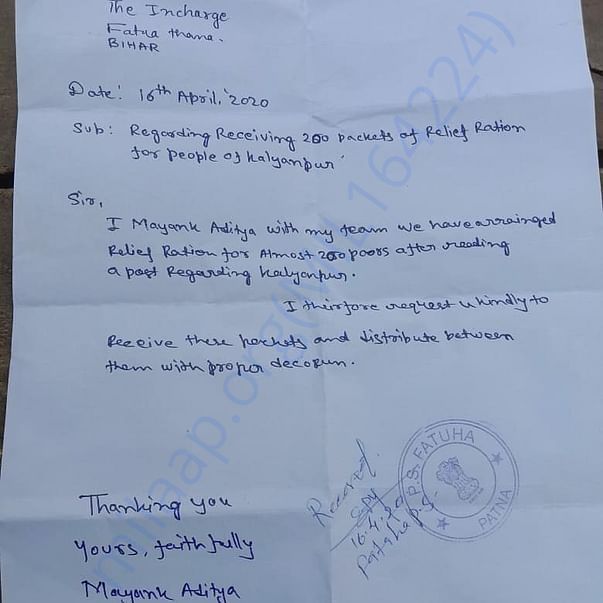 The Incharge
Fatua thana.
BIHAR
Date: 16th April, 2020
Sub: Regarding Receiving 200 packets of Relief Ration
for people of Kalyanpur
Sir,
I Mayank Aditya with my team we have arrainged
Relief Ration for Almost 200 poors after reading
a post Regarding Kalyanpur.
I thirfore request u kindly to
Receive these packets and distribute between
them with propor decorum.
Thanking you
yours, faithfully
Mayank Aditya
Received
16.4.20
P.S.
P.S. FATUHA
PATNA
milaap.org(MIL164224)